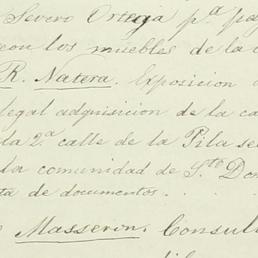 Severo Ortega p.ª pag
con los muebles de la c
R. Natera. Exposicion
legal adquisicion de la ca
la 2.ª calle de la Pila se
la comunidad de S.to Dom
ta de documentos.
Masseron. Consul